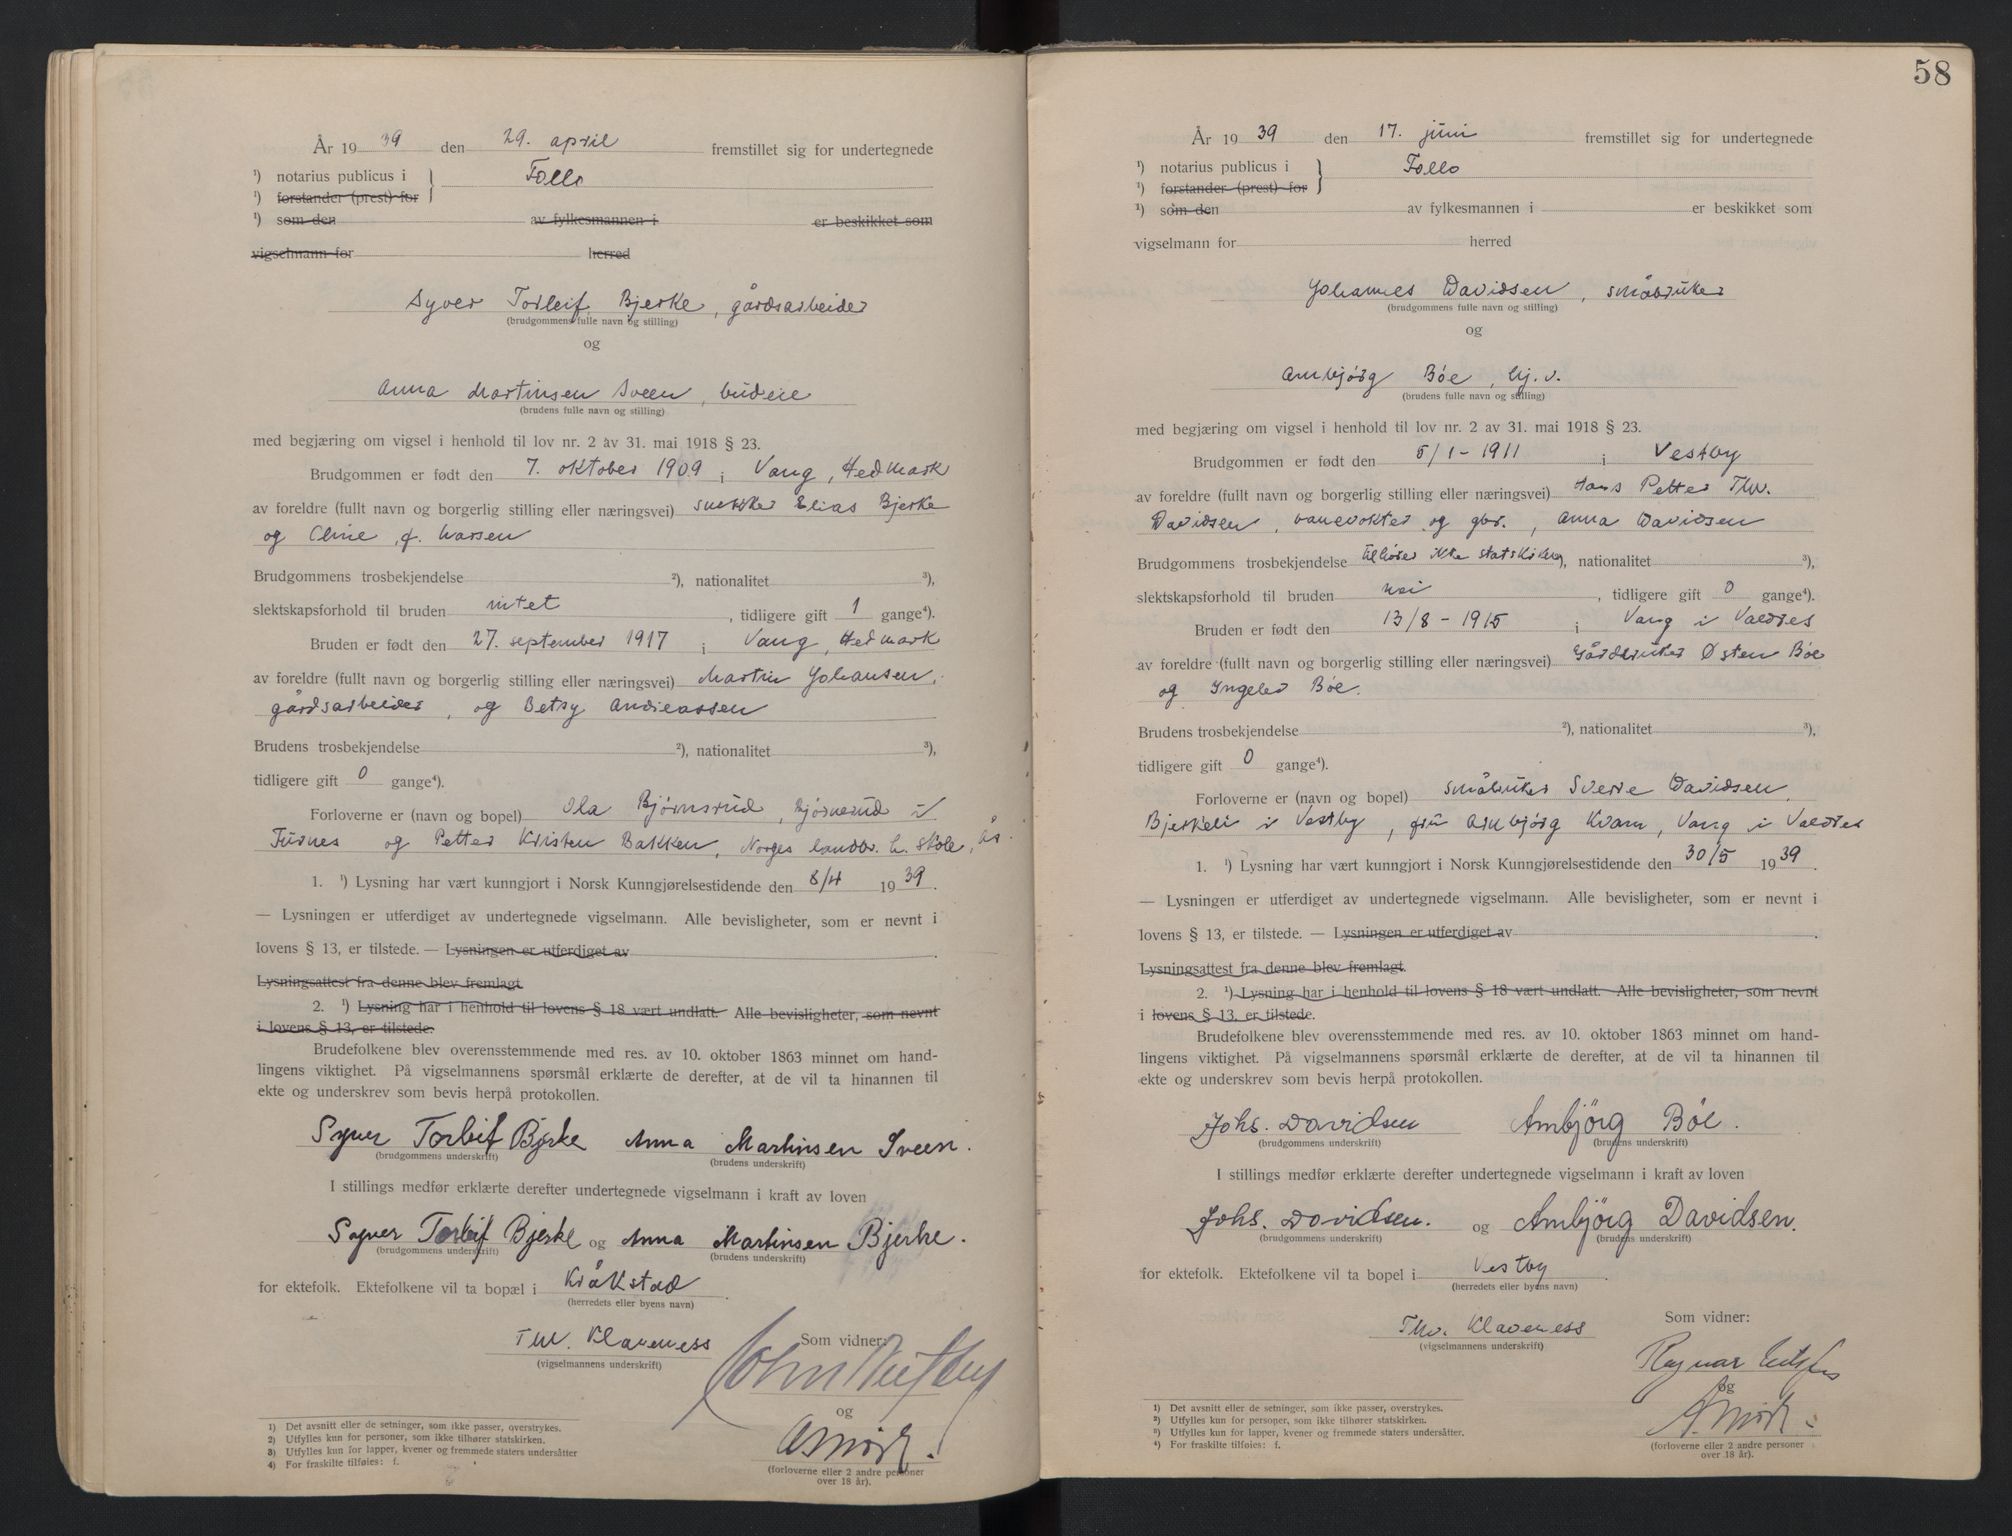 År 19 39 den 29. april fremstillet sig for undertegnede
¹) notarius publicus i } Follo
¹) forstander (prest) for
¹) som den av fylkesmannen i er beskikket som
vigselmann for herred
Syver Torleif Bjerke, gårdsarbeider
(brudgommens fulle navn og stilling)
og
Anna Martinsen Sveen, budeie
(brudens fulle navn og stilling)
med begjæring om vigsel i henhold til lov nr. 2 av 31. mai 1918 § 23.
Brudgommen er født den 7. oktober 1909 i Vang, Hedmark
av foreldre (fullt navn og borgerlig stilling eller næringsvei) snekker Elias Bjerke
og Oline, f. Larsen
Brudgommens trosbekjendelse ²), nationalitet ³),
slektskapsforhold til bruden intet, tidligere gift 1 gange⁴).
Bruden er født den 27. september 1917 i Vang, Hedmark
av foreldre (fullt navn og borgerlig stilling eller næringsvei) Martin Johansen,
gårdsarbeider, og Betsy Andreassen
Brudens trosbekjendelse ²), nationalitet ³),
tidligere gift 0 gange⁴).
Forloverne er (navn og bopel) Ola Bjørnsrud, Bjørnerud i
Furnes og Petter Kristen Bakken, Norges landbr. h. skole, Ås.
1. ¹) Lysning har vært kunngjort i Norsk Kunngjørelsestidende den 8/4 19 39.
— Lysningen er utferdiget av undertegnede vigselmann. Alle bevisligheter, som er nevnt i
lovens § 13, er tilstede. — Lysningen er utferdiget av
Lysningsattest fra denne blev fremlagt.
2. ¹) Lysning har i henhold til lovens § 18 vært undlatt. Alle bevisligheter, som nevnt
i lovens § 13, er tilstede.
Brudefolkene blev overensstemmende med res. av 10. oktober 1863 minnet om hand-
lingens viktighet. På vigselmannens spørsmål erklærte de derefter, at de vil ta hinannen til
ekte og underskrev som bevis herpå protokollen.
Syver Torleif Bjerke Anna Martinsen Sveen.
(brudgommens underskrift) (brudens underskrift)
I stillings medfør erklærte derefter undertegnede vigselmann i kraft av loven
Syver Torleif Bjerke og Anna Martinsen Bjerke.
(brudgommens underskrift) (brudens underskrift)
for ektefolk. Ektefolkene vil ta bopæl i Kråkstad
(herredets eller byens navn)
Thv. Klaveness Som vidner:
(vigselmannens underskrift)
John
og
A. Mørk.
(forloverne eller 2 andre personer
over 18 år).
1) Det avsnitt eller de setninger, som ikke passer, overstrykes.
2) Utfylles kun for personer, som ikke tilhører statskirken.
3) Utfylles kun for lapper, kvener og fremmede staters undersåtter
4) For fraskilte tilføies: f.
58
År 19 39 den 17. juni fremstillet sig for undertegnede
¹) notarius publicus i } Follo
¹) forstander (prest) for
¹) som den av fylkesmannen i er beskikket som
vigselmann for herred
Johannes Davidsen, småbruker
(brudgommens fulle navn og stilling)
og
Ambjörg Böe, hj. v.
(brudens fulle navn og stilling)
med begjæring om vigsel i henhold til lov nr. 2 av 31. mai 1918 § 23.
Brudgommen er født den 5/1 - 1911 i Vestby
av foreldre (fullt navn og borgerlig stilling eller næringsvei) Hans Petter Thv.
Davidsen, banevokter og gbr., Anna Davidsen
Brudgommens trosbekjendelse tilhører ikke statskirken ²), nationalitet ³),
slektskapsforhold til bruden nei, tidligere gift 0 gange⁴).
Bruden er født den 13/8 - 1915 i Vang i Valdres
av foreldre (fullt navn og borgerlig stilling eller næringsvei) Gårdbruker Østen Böe
og Ingeleo Böe.
Brudens trosbekjendelse ²), nationalitet ³),
tidligere gift 0 gange⁴).
Forloverne er (navn og bopel) småbruker Sverre Davidsen,
Bjerkeli i Vestby, fru Ambjörg Kvam, Vang i Valdres
1. ¹) Lysning har vært kunngjort i Norsk Kunngjørelsestidende den 30/5 19 39.
— Lysningen er utferdiget av undertegnede vigselmann. Alle bevisligheter, som er nevnt i
lovens § 13, er tilstede. — Lysningen er utferdiget av
Lysningsattest fra denne blev fremlagt.
2. ¹) Lysning har i henhold til lovens § 18 vært undlatt. Alle bevisligheter, som nevnt
i lovens § 13, er tilstede.
Brudefolkene blev overensstemmende med res. av 10. oktober 1863 minnet om hand-
lingens viktighet. På vigselmannens spørsmål erklærte de derefter, at de vil ta hinannen til
ekte og underskrev som bevis herpå protokollen.
Johs. Davidsen Ambjörg Böe.
(brudgommens underskrift) (brudens underskrift)
I stillings medfør erklærte derefter undertegnede vigselmann i kraft av loven
Johs. Davidsen. og Ambjörg Davidsen.
(brudgommens underskrift) (brudens underskrift)
for ektefolk. Ektefolkene vil ta bopel i Vestby
(herredets eller byens navn)
Thv. Klaveness Som vidner:
(vigselmannens underskrift)
Ragnar
og
A. Mørk.
(forloverne eller 2 andre personer
over 18 år).
1) Det avsnitt eller de setninger, som ikke passer, overstrykes.
2) Utfylles kun for personer, som ikke tilhører statskirken.
3) Utfylles kun for lapper, kvener og fremmede staters undersåtter.
4) For fraskilte tilføies: f.